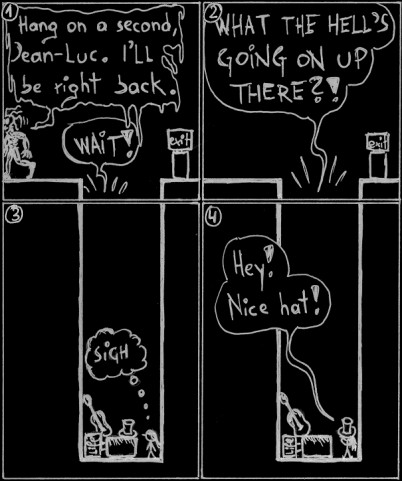 1
Hang on a second,
Jean-Luc. I'LL
be right back.
WAIT!
exit
2
WHAT THE HELL'S
GOING ON UP
THERE?!
exit
3
SIGH
Life
4
Hey!
Nice hat!
Life